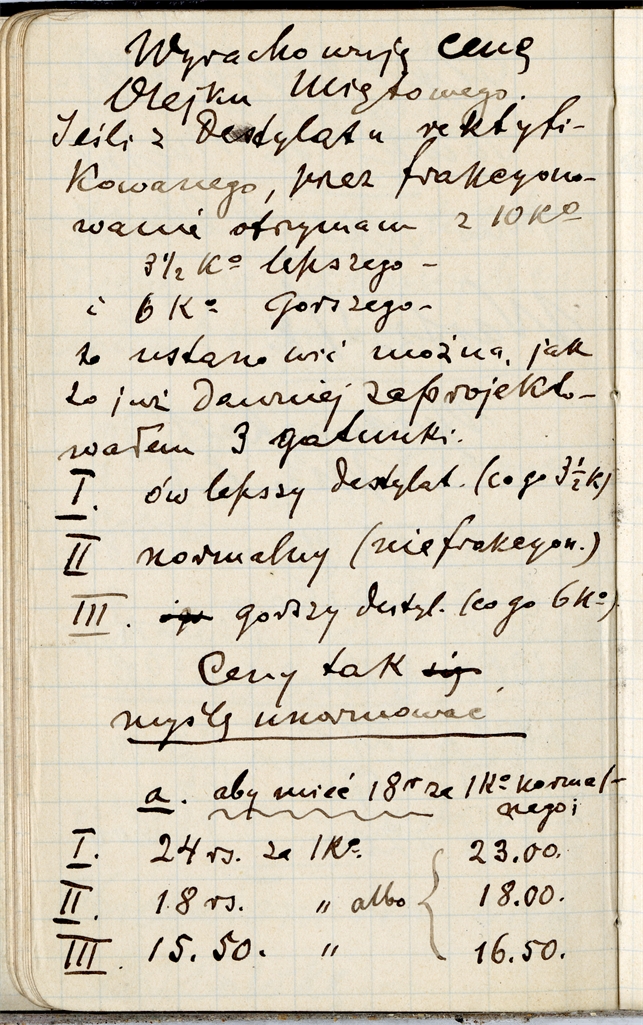 Wyrachowuję cenę
Olejku Miętowego.
Jeśli z Destylatu rektyfi-
kowanego, przez frakcyono-
wanie otrzymam z 10 Ko
3 1/2 Ko lepszego -
i 6 Ko Gorszego -
to ustanowić można, jak
to już Dawniej zaprojekto-
wałem 3 gatunki.
I. ów lepszy destylat. (co go 3 1/2 K)
II normalny (niefrakcyon.)
III. gorszy destyl. (co go 6 Ko)
Ceny tak się
myślę unormować
a. aby mieć 18 r za 1 Ko normal-
nego;
I. 24 rs. za 1 Ko. 23.00.
II. 18 rs. " albo { 18.00.
III. 15.50. " 16.50.